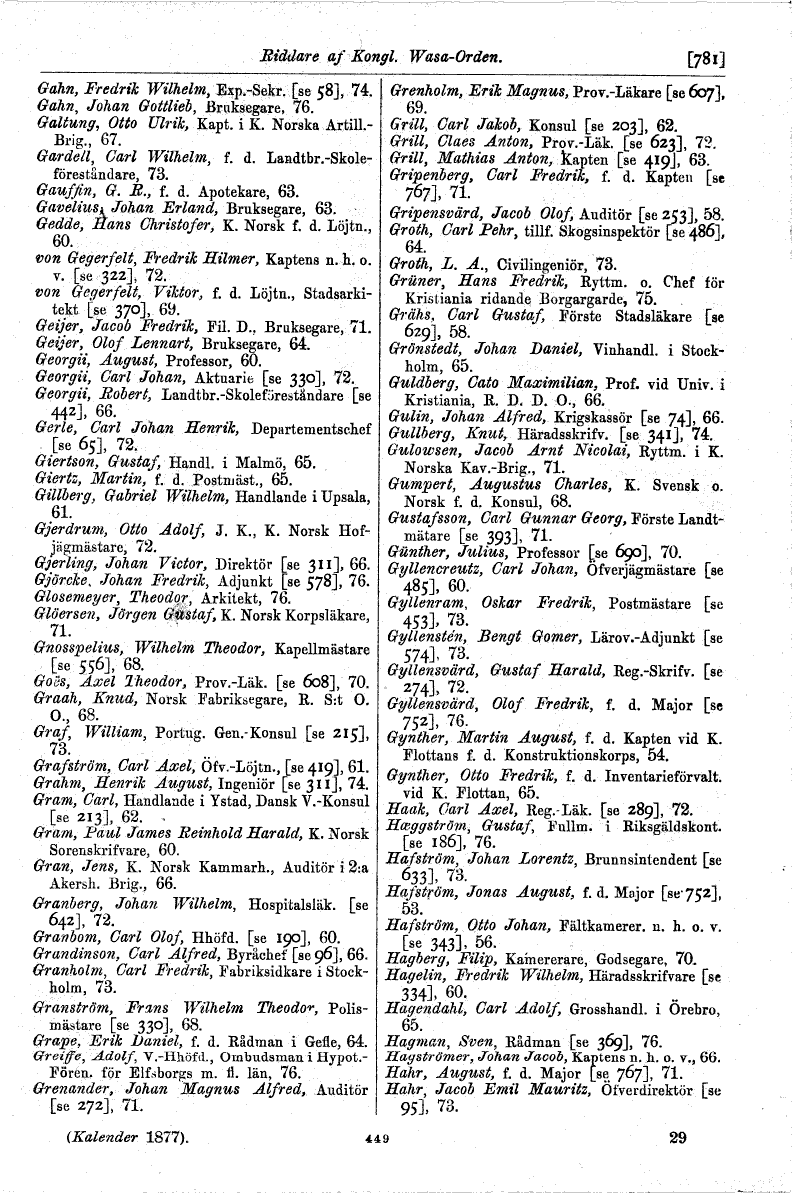 Riddare af Kongl. Wasa-Orden. [781]
Gahn, Fredrik Wilhelm, Exp.-Sekr. [se 58], 74.
Gahn, Johan Gottlieb, Bruksegare, 76.
Galtung, Otto Ulrik, Kapt. i K. Norska Artill.-
Brig., 67.
Gardell, Carl Wilhelm, f. d. Landtbr.-Skole-
föreståndare, 73.
Gauffin, G. R., f. d. Apotekare, 63.
Gavelius, Johan Erland, Bruksegare, 63.
Gedde, Hans Christofer, K. Norsk f. d. Löjtn.,
60.
von Gegerfelt, Fredrik Hilmer, Kaptens n. h. o.
v. [se 322], 72.
von Gegerfelt, Viktor, f. d. Löjtn., Stadsarki-
tekt [se 370], 69.
Geijer, Jacob Fredrik, Fil. D., Bruksegare, 71.
Geijer, Olof Lennart, Bruksegare, 64.
Georgii, August, Professor, 60.
Georgii, Carl Johan, Aktuarie [se 330], 72.
Georgii, Robert, Landtbr.-Skoleföreståndare [se
442], 66.
Gerle, Carl Johan Henrik, Departementschef
[se 65], 72.
Giertson, Gustaf, Handl. i Malmö, 65.
Giertz, Martin, f. d. Postmäst., 65.
Gillberg, Gabriel Wilhelm, Handlande i Upsala,
61.
Gjerdrum, Otto Adolf, J. K., K. Norsk Hof-
jägmästare, 72.
Gjerling, Johan Victor, Direktör [se 311], 66.
Gjörcke, Johan Fredrik, Adjunkt [se 578], 76.
Glosemeyer, Theodor, Arkitekt, 76.
Glöersen, Jörgen Gustaf, K. Norsk Korpsläkare,
71.
Gnosspelius, Wilhelm Theodor, Kapellmästare
[se 556], 68.
Goës, Axel Theodor, Prov.-Läk. [se 608], 70.
Graah, Knud, Norsk Fabriksegare, R. S:t O.
O., 68.
Graf, William, Portug. Gen.-Konsul [se 215],
73.
Grafström, Carl Axel, Öfv.-Löjtn., [se 419], 61.
Grahm, Henrik August, Ingeniör [se 311], 74.
Gram, Carl, Handlande i Ystad, Dansk V.-Konsul
[se 213], 62.
Gram, Paul James Reinhold Harald, K. Norsk
Sorenskrifvare, 60.
Gran, Jens, K. Norsk Kammarh., Auditör i 2:a
Akersh. Brig., 66.
Granberg, Johan Wilhelm, Hospitalsläk. [se
642], 72.
Granbom, Carl Olof, Hhöfd. [se 190], 60.
Grandinson, Carl Alfred, Byråchef [se 96], 66.
Granholm, Carl Fredrik, Fabriksidkare i Stock-
holm, 73.
Granström, Frans Wilhelm Theodor, Polis-
mästare [se 330], 68.
Grape, Erik Daniel, f. d. Rådman i Gefle, 64.
Greiffe, Adolf, V.-Hhöfd., Ombudsman i Hypot.-
Fören. för Elfsborgs m. fl. län, 76.
Grenander, Johan Magnus Alfred, Auditör
[se 272], 71.
Grenholm, Erik Magnus, Prov.-Läkare [se 607],
69.
Grill, Carl Jakob, Konsul [se 203], 62.
Grill, Claes Anton, Prov.-Läk. [se 623], 72.
Grill, Mathias Anton, Kapten [se 419], 63.
Gripenberg, Carl Fredrik, f. d. Kapten [se
767], 71.
Gripensvärd, Jacob Olof, Auditör [se 253], 58.
Groth, Carl Pehr, tillf. Skogsinspektör [se 486],
64.
Groth, L. A., Civilingeniör, 73.
Grüner, Hans Fredrik, Ryttm. o. Chef för
Kristiania ridande Borgargarde, 75.
Grähs, Carl Gustaf, Förste Stadsläkare [se
629], 58.
Grönstedt, Johan Daniel, Vinhandl. i Stock-
holm, 65.
Guldberg, Cato Maximilian, Prof. vid Univ. i
Kristiania, R. D. D. O., 66.
Gulin, Johan Alfred, Krigskassör [se 74], 66.
Gullberg, Knut, Häradsskrifv. [se 341], 74.
Gulowsen, Jacob Arnt Nicolai, Ryttm. i K.
Norska Kav.-Brig., 71.
Gumpert, Augustus Charles, K. Svensk o.
Norsk f. d. Konsul, 68.
Gustafsson, Carl Gunnar Georg, Förste Landt-
mätare [se 393], 71.
Günther, Julius, Professor [se 690], 70.
Gyllencreutz, Carl Johan, Öfverjägmästare [se
485], 60.
Gyllenram, Oskar Fredrik, Postmästare [se
453], 73.
Gyllenstén, Bengt Gomer, Lärov.-Adjunkt [se
574], 73.
Gyllensvärd, Gustaf Harald, Reg.-Skrifv. [se
274], 72.
Gyllensvärd, Olof Fredrik, f. d. Major [se
752], 76.
Gynther, Martin August, f. d. Kapten vid K.
Flottans f. d. Konstruktionskorps, 54.
Gynther, Otto Fredrik, f. d. Inventarieförvalt.
vid K. Flottan, 65.
Haak, Carl Axel, Reg.-Läk. [se 289], 72.
Hæggström, Gustaf, Fullm. i Riksgäldskont.
[se 186], 76.
Hafström, Johan Lorentz, Brunnsintendent [se
633], 73.
Hafström, Jonas August, f. d. Major [se 752],
53.
Hafström, Otto Johan, Fältkamerer. n. h. o. v.
[se 343], 56.
Hagberg, Filip, Kamererare, Godsegare, 70.
Hagelin, Fredrik Wilhelm, Häradsskrifvare [se
334], 60.
Hagendahl, Carl Adolf, Grosshandl. i Örebro,
65.
Hagman, Sven, Rådman [se 369], 76.
Hagströmer, Johan Jacob, Kaptens n. h. o. v., 66.
Hahr, August, f. d. Major [se 767], 71.
Hahr, Jacob Emil Mauritz, Öfverdirektör [se
95], 73.
(Kalender 1877). 449 29